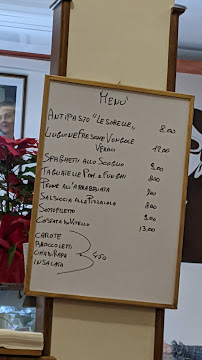 MENU'
ANTIPASTO "LE SORELLE" 8.00
LINGUINE FRESCHE VONGOLE
VERACI 12.00
SPAGHETTI ALLO SCOGLIO 9.00
TAGLIATELLE POM. E FUNGHI 8.00
PENNE ALL'ARRABBIATA 7.00
SALSICCIA ALLA PIZZAIOLA 8.00
SOTTOFILETTO 9.00
COSTATA DI VITELLO 13.00
CAROTE
BROCCOLETTI
CIME DI RAPA 4.50
INSALATA